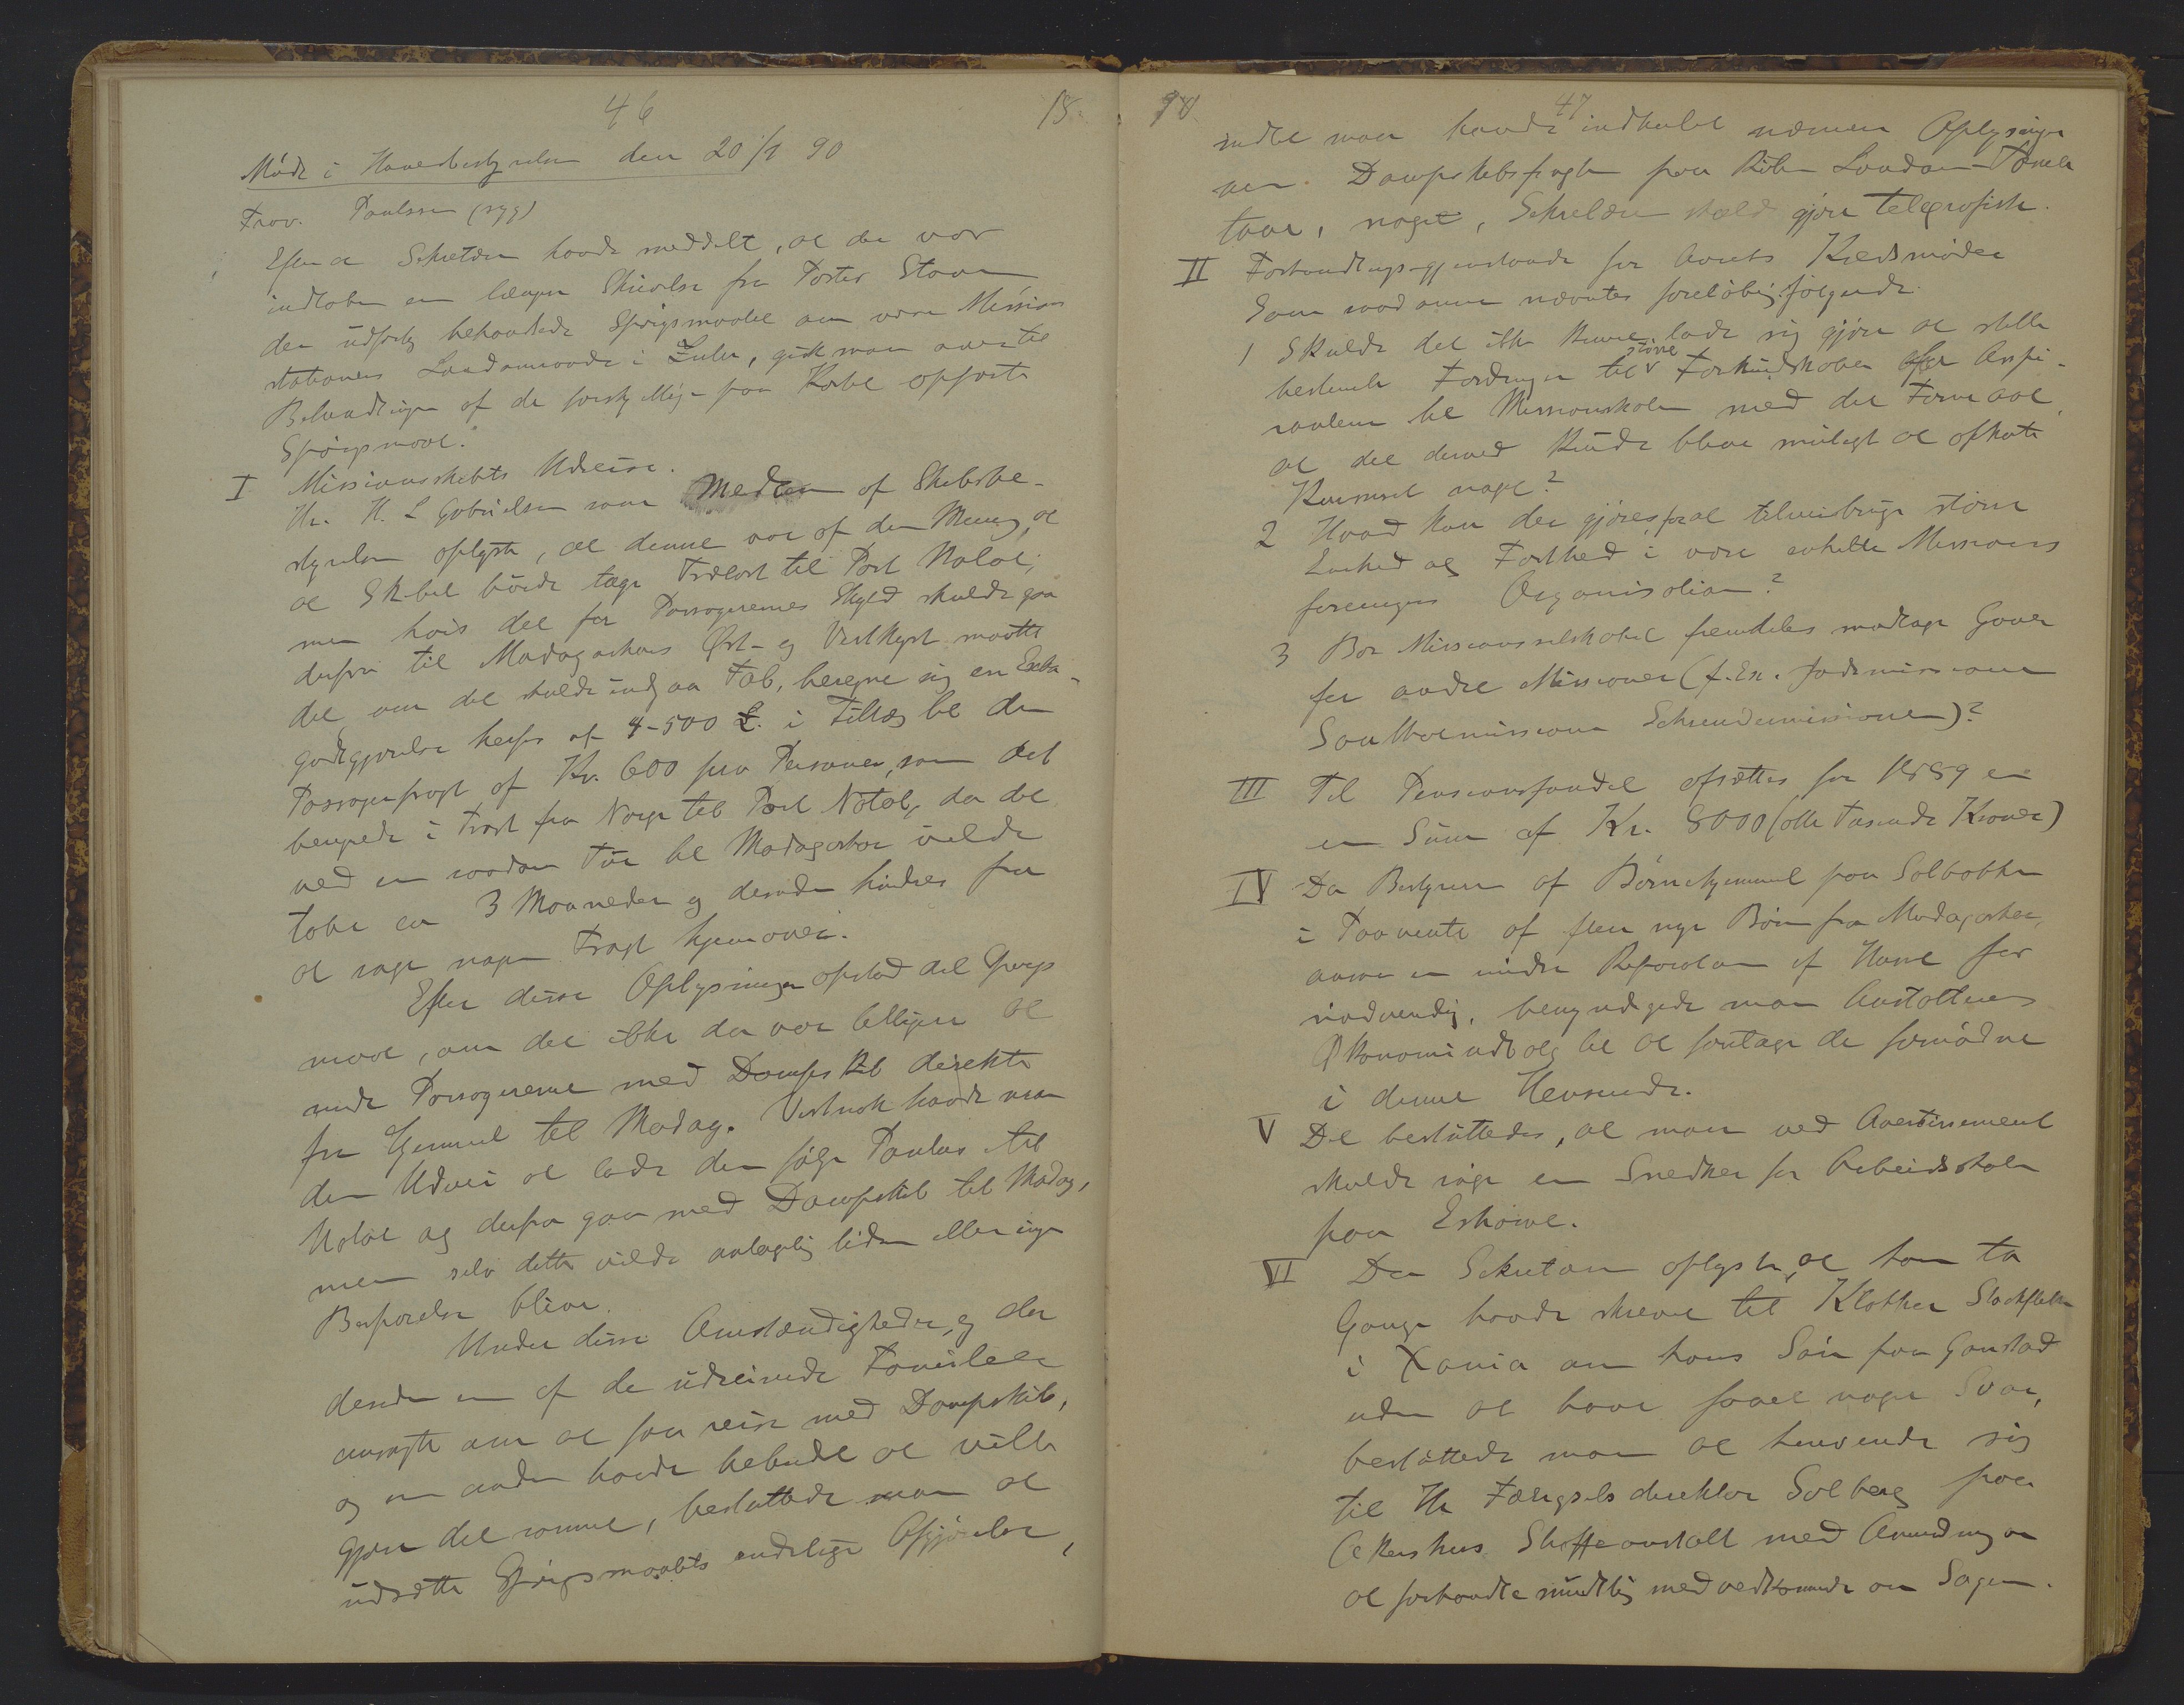 46
15.
Møde i Hovedbestyrelsen den 20/1 90
Frav. Paulssen (syg)
Efter at Sekretæren havde meddelt, at der var
indløben en længere Skrivelse fra Pastor Stavem
der udførlig behandlede Spørgsmaalet om vore Missions
stationers Landomraade i Zulu, gik man over til
Behandlingen af de forskjellige paa Kortet opførte
Spørgsmaal.
I Missionsskibets Udreise.
Hr. H. L Gabrielsen som Medlem af Skibsbe-
styrelsen oplyste, at denne var af den Mening, at
at Skibet burde tage Trælast til Port Natal,
men hvis det for Passagerernes Skyld skulde gaa
derfra til Madagaskars Øst- og Vestkyst maatte
det om det skulde undgaa Tab, beregne sig en Extra-
godtgjørelse herfor af 4-500 £. i Tillæg til den
Passagerfragt af Kr. 600 pro Personer, som det
beregnede i Fragt fra Norge til Port Natal, da det
ved en saadan Tur til Madagaskar vilde
tabe ca 3 Maaneder og desuden hindres fra
at søge nogen Fragt hjemover.
Efter disse Oplysninger opstod det Spørgs
maal, om det ikke da var billigere at
sende Passagererne med Dampskib direkte
fra Hjemmet til Madag. Vistnok havde man
den Udvei at lade dem følge Paulus til
Natal og derfra gaa med Dampskib til Madag,
men selv dette vilde antagelig liden eller ingen
Besparelse blive.
Under disse Omstændigheder, og da
desuden en af de udreisende Familier
ansøgte om at faa reise med Dampskib,
og en anden havde bebudet at ville
gjøre det samme, besluttede man at
udsætte Spørgsmaalets endelige Afgjørelse,
47
indtil man havde indhentet nærmere Oplysninger
om Dampskibsfragten paa Ruten London-Tama
tave, noget, Sekretæren skulde gjøre telegrafisk.
II Forhandlingsgjenstande for Aarets Kredsmøder
Som saadanne nævntes foreløbig følgende
1 Skulde det ikke kunne lade sig gjøre at stille
bestemte Fordringer til større Forkundskaber for Aspi-
ranterne til Missionsskolen med det Formaal
at det derved kunde blive muligt at afkorte
Kurset noget?
2 Hvad kan der gjøres for at tilveiebringe større
Enhed og Fasthed i vore enkelte Missions
foreningers Organisation?
3 Bør Missionsselskabet fremdeles modtage Gaver
for andre Missioner (f. Ex. Jødemissionen
Santhalmissionen Schreudermissionen)?
III Til Pensionsfondet afsættes for 1889 en
en Sum af Kr. 8000 (otte Tusende Kroner)
IV Da Bestyreren af Børnehjemmet paa Solbakken
i Paavente af flere nye Børn fra Madagaskar,
ansaa en mindre Reparation af Huset for
nødvendig, bemyndigede man Anstaltens
Økonomiudvalg til at foretage de fornødne
i denne Henseende.
V Det besluttedes, at man ved Avertissement
skulde søge en Snedker for Arbeidsskolen
paa Eshowe.
VI Da Sekretæren oplyste, at han to
Gange havde skrevet til Klokker Stockfleth
i Xania om hans Søn paa Gaustad
uden at have faaet noget Svar,
besluttede man at henvende sig
til Hr Fængselsdirektør Solberg paa
Akershus Straffeanstalt med Anmodning om
at forhandle mundtlig med vedkommende om Sagen.